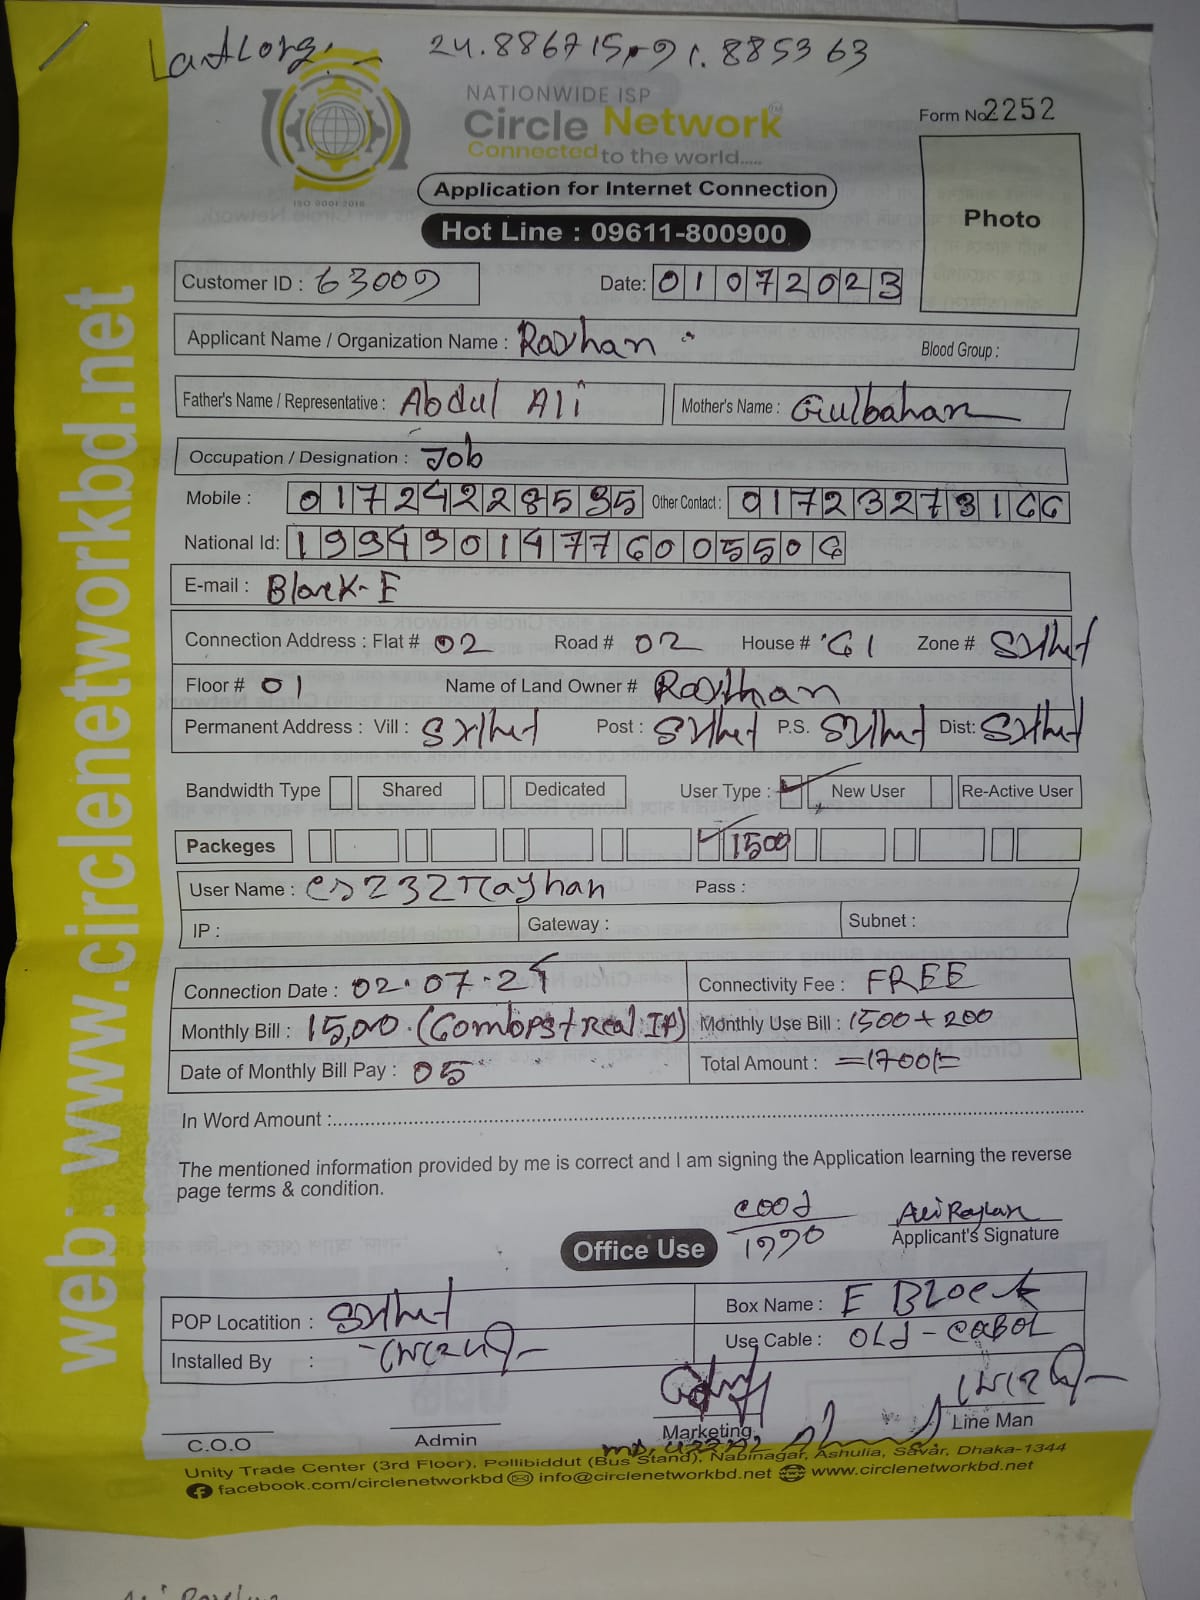 24.886715, 91.885363
NATIONWIDE ISP
Circle Network
Connected to the world.....
ISO 9001:2015
Form No. 2252
Photo
Application for Internet Connection
Hot Line : 09611-800900
Customer ID : 63009 Date: 01072023
Applicant Name / Organization Name : Rayhan Blood Group :
Father's Name / Representative : Abdul Ali Mother's Name : Gulbahar
Occupation / Designation : Job
Mobile : Other Contact :
National Id:
E-mail : Block-E
Connection Address : Flat # 02 Road # 02 House # 61 Zone # Sylhet
Floor # 01 Name of Land Owner # Rayhan
Permanent Address : Vill : Sylhet Post : Sylhet P.S. Sylhet Dist: Sylhet
Bandwidth Type Shared Dedicated User Type : New User Re-Active User
Packeges 1500
User Name : Pass :
IP : Gateway : Subnet :
Connection Date : 02.07. Connectivity Fee : FREE
Monthly Bill : (60mbps + Real IP) Monthly Use Bill : 1500 + 200
Date of Monthly Bill Pay : 05 Total Amount : =1700/=
In Word Amount :
The mentioned information provided by me is correct and I am signing the Application learning the reverse
page terms & condition.
Ali Rayhan
Applicant's Signature
Office Use
POP Locatition : Sylhet Box Name : E Block
Installed By : Use Cable : Old - Cabol
C.O.O Admin Marketing Line Man
Unity Trade Center (3rd Floor), Pollibiddut (Bus Stand), Nabinagar, Ashulia, Savar, Dhaka-1344
facebook.com/circlenetworkbd info@circlenetworkbd.net www.circlenetworkbd.net
web: www.circlenetworkbd.net